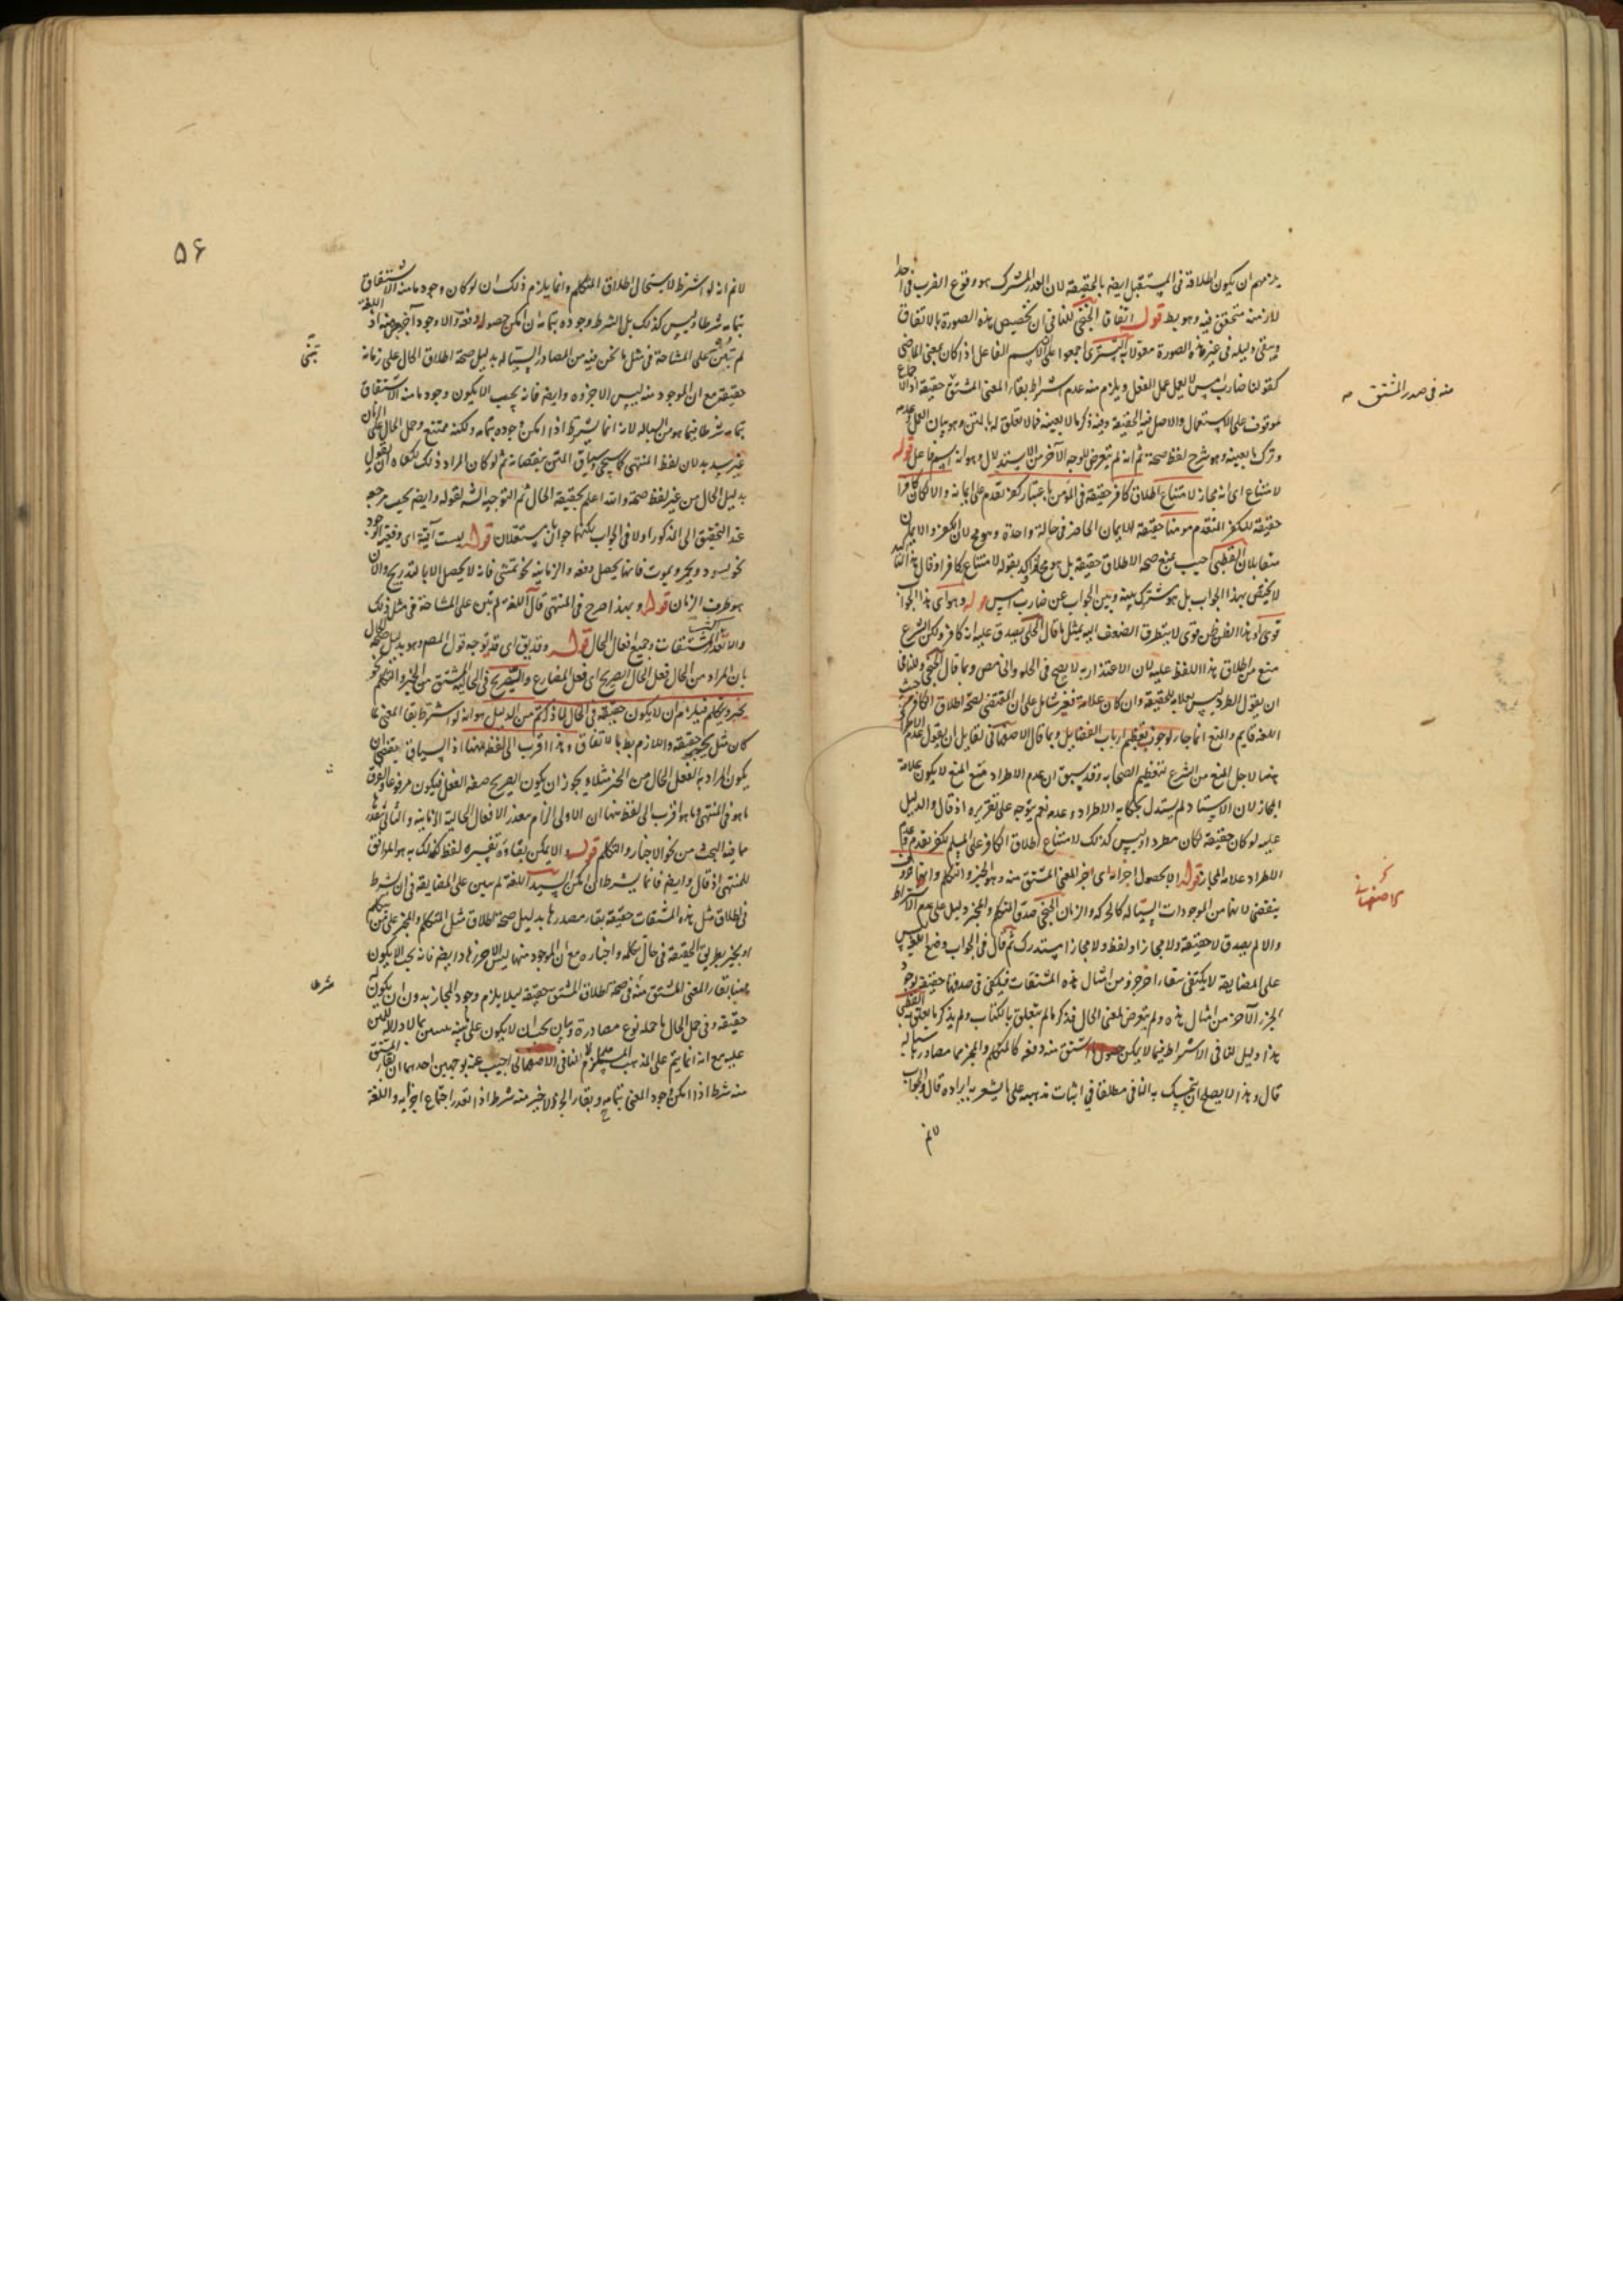 يلزمهم ان يكون اطلاقه في المستقبل ايضا بالحقيقة لان القدر المشترك هو وقوع الضرب في احد
الازمنة متحقق فيه وهو بط قوله اتفاق الخنجي للنافي ان تخصيص هذه الصورة بالاتفاق
ويبقى دليله في غير هذه الصورة معمولا به التستري اجمعوا على ان اسم الفاعل اذا كان بمعنى الماضي
كقولنا ضارب امس لا يعمل عمل الفعل ويلزم منه عدم اشتراط بقاء المعنى المشتق حقيقة اذ الاجماع
منه في صدر المشتق صح
موقوف على الاستعمال والاصل فيه الحقيقة وفيه ذكر ما لا يعنيه فما لا تعلق له بالمتن وهو بيان العمل وعدمه
وترك ما يعنيه وهو شرح لفظ صحة ثم انه لم يتعرض للوجه الآخر من الاستدلال وهو انه اسم فاعل قوله
لامتناع اي انه مجاز لامتناع اطلاق كافر حقيقة في المؤمن باعتبار كفر تقدم على ايمانه والا لكان كافرا
حقيقة للكفر المتقدم مومنا حقيقة للايمان الحاضر في حالة واحدة وهو مح لان الكفر والايمان
متقابلان القطبي اجيب بمنع صحة الاطلاق حقيقة بل هو مجاز اكد بقوله لامتناع كافر اذ قال هذا التاكيد
لا يختص بهذا الجواب بل هو مشترك بينه وبين الجواب عن ضارب امس قوله وهو اي هذا الجواب
قوي او هذا الظن ظن قوي لا يتطرق الضعف اليه بمثل ما قال الحلي يصدق عليه انه كافر ولكن الشرع
منع من اطلاق هذا اللفظ عليه لان الاعتذار به لا يصح في الحلو والحامض وبما قال الخنجي وللنافي
ان يقول الطرد ليس علامة للحقيقة وان كان علامة فغير شامل على ان المقتضي لصحة اطلاق الكافر من حيث
اللغة قايم والمنع انما جاز لوجوب تعظيم ارباب الفضايل وبما قال الاصفهاني لقايل ان يقول عدم الاطراد
ههنا لاجل المنع من الشرع لتعظيم الصحابة وقد سبق ان عدم الاطراد مع المنع لا يكون علامة
المجاز لان الاستاد لم يستدل بحكاية الاطراد وعدمه نعم يتوجه على تقريره اذ قال والدليل
عليه لو كان حقيقة لكان مطردا وليس كذلك لامتناع اطلاق الكافر على المسلم بكفر تقدم وعدم
الاطراد علامة المجاز قوله الا بحصول اجزائه اي اجزاء المعنى المشتق منه وهو الخبر والتكلم وانها حروف
الاصفهاني
ينقضي لانها من الموجودات السيالة كالحركة والزمان الخنجي صدق المتكلم والمخبر دليل على عدم الاشتراط
والا لم يصدق لا حقيقة ولا مجازا ولفظ ولا مجازا مستدرك ثم قال في الجواب وضع اللغة ليس
على المضايقة لا يكتفي ببقاء آخر جزء من امثال هذه المشتقات فيكفي في صدقها حقيقة وجود
الجزء الآخر من امثال هذه ولم يتعرض لمعنى الحال فذكر ما لم يتعلق بالكتاب ولم يذكر ما يتعلق به القطبي
هذا دليل للنافي الاشتراط فيما لا يمكن حصول المشتق منه دفعة كالمتكلم والمخبر مما مصادرها سيالة
قال وهذا لا يصلح ان يتمسك به النافي مطلقا في اثبات مذهبه على ما يشعر به ايراده قال والجواب
لانم
٥٦
لانم انه لو اشترط لاستحال اطلاق المتكلم وانما يلزم ذلك ان لو كان وجود ما منه الاشتقاق
بتمامه شرطا وليس كذلك بل الشرط وجوده بتمامه ان امكن حصوله دفعة والا وجود آخر جزء منه اذ اللغة
لم تبن على المشاحة في مثل ما نحن فيه من المصادر السيالة بدليل صحة اطلاق الحال على زمانه
تبنى
حقيقة مع ان الموجود منه ليس الا جزؤه وايضا فانه يجب الا يكون وجود ما منه الاشتقاق
بتمامه شرطا فيما هو من السيالة لانه انما يشترط اذا امكن وجوده بتمامه ولكنه ممتنع وحمل الحال على الزمان
غير سديد لان لفظ المنتهى كما سيجي وسياق المتن ينقضانه ثم لو كان المراد ذلك لكفاه ان يقول
بدليل الحال من غير لفظ صحة والله اعلم بحقيقة الحال ثم التوجيه الثاني لقوله وايضا يجب يرجع
عند التحقيق الى المذكور اولا في الجواب لكنهما جوابان مستقلان قوله ليست آنية اي دفعية الوجود
نحو يسود ويحمر ويموت فانها يحصل دفعة والزمانية نحو تمشي فانه لا يحصل الا بالتدريج والآن
هو طرف الزمان قوله وبهذا صرح في المنتهى قال اللغة لم تبن على المشاحة في مثل ذلك
والا لتعذر اكثر المشتقات وجميع افعال الحال قوله وقد يق اي قد يوجه قول المصم وهو بدليل صحة الحال
بان المراد من الحال فعل الحال الصريح اي فعل المضارع والتصريح في الحالية المشتق من الخبر والتكلم نحو
يخبر ويتكلم فيلزم ان لا يكون حقيقة في الحال لما ذكرتم من الدليل هو انه لو اشترط بقاء المعنى لما
كان مثل يخبر حقيقة واللازم بط بالاتفاق وهذا اقرب الى لفظه ههنا اذ السياق يقتضي ان
يكون المراد به الفعل الحال من الخبر مثلا ويجوز ان يكون الصريح صفة الفعل فيكون مرفوعا والفرق
ما هو في المنتهى وما هو اقرب الى لفظه ههنا ان الاولى الزام بتعذر الافعال الحالية الآنية والثاني بتعذر
ما فيه البحث من نحو الاخبار والتكلم قوله والا يمكن بقاؤه تفسيره لفظ كذلك به هو الموافق
للمنتهى اذ قال وايضا فانما يشترط ان امكن السيد اللغة لم يبين على المضايقة في ان يشترط
في اطلاق مثل هذه المشتقات حقيقة بقاء مصدرها بدليل صحة اطلاق مثل المتكلم والمخبر على من يتكلم
او يخبر بطريق الحقيقة في حال تكلمه واخباره مع ان الموجود منها ليس الا جزءها وايضا فانه يجب الا يكون
شرطا
حقيقة وفي حمل الحال ما حمله نوع مصادرة
عليه مع انه انما يتم على المذهب
منه شرط اذا امكن وجود المعنى بتمامه وبقاء الجزء الاخير منه شرط اذا تعذر اجتماع اجزائه واللغة